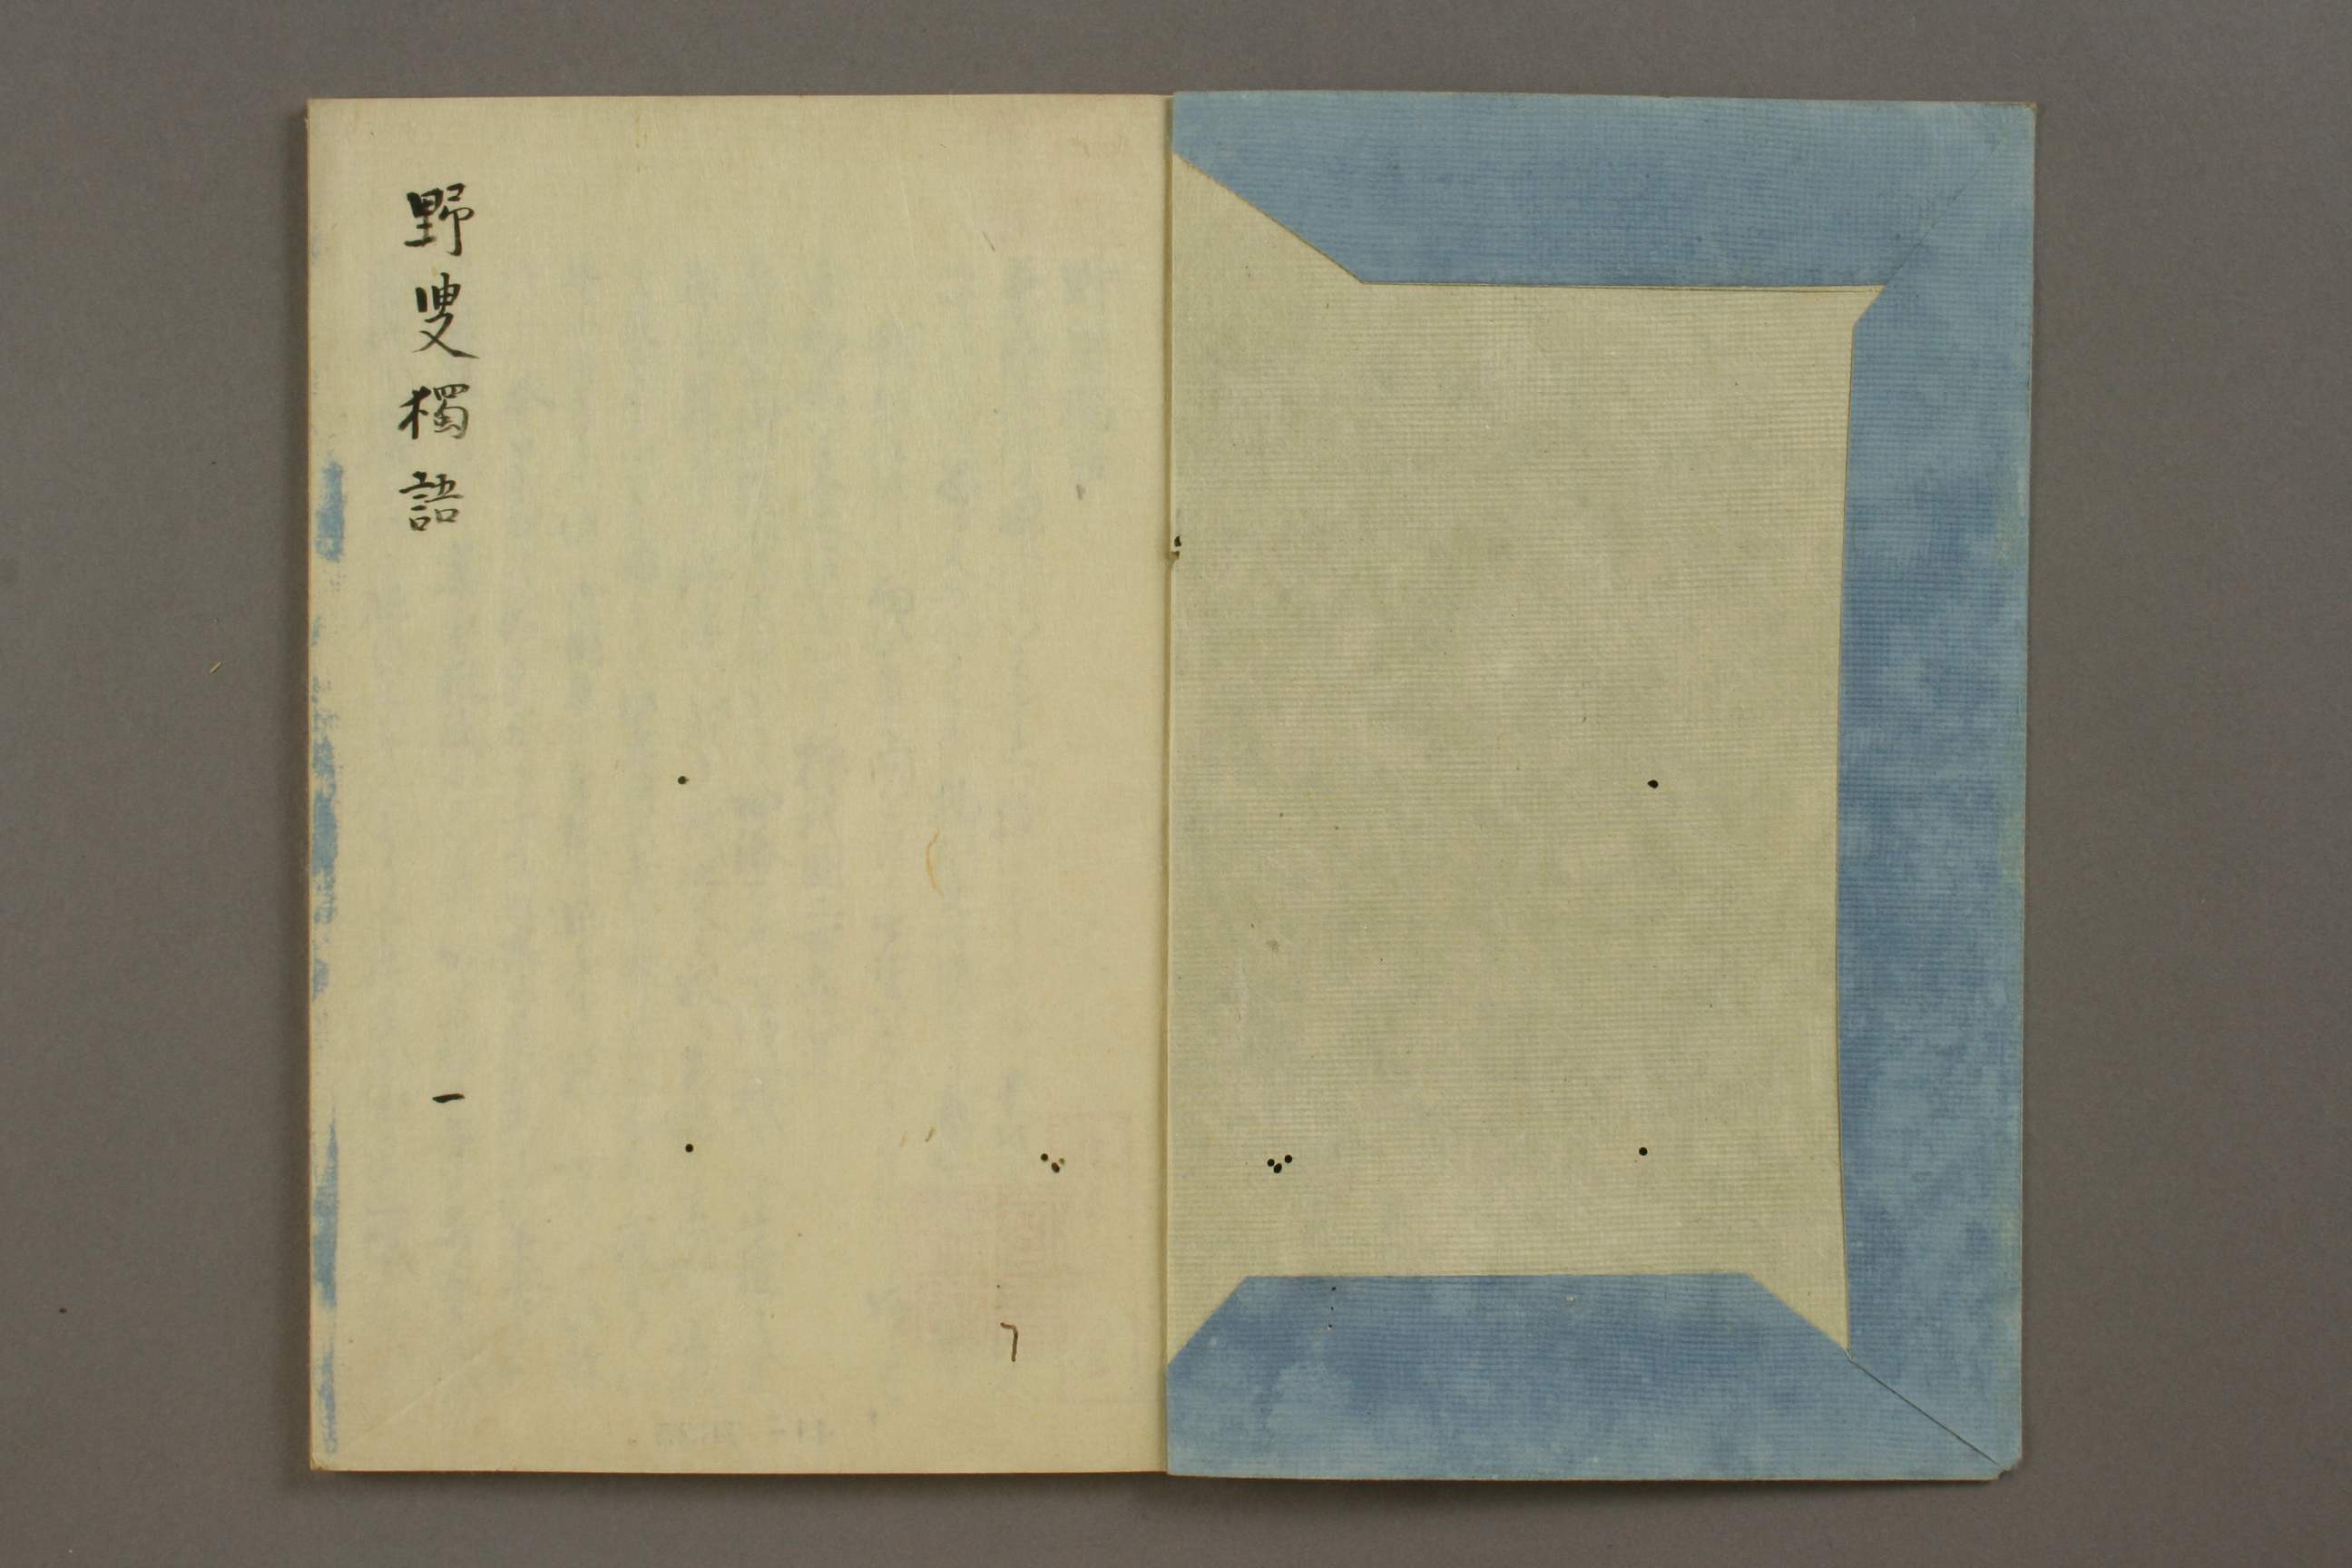 野叟獨語
一